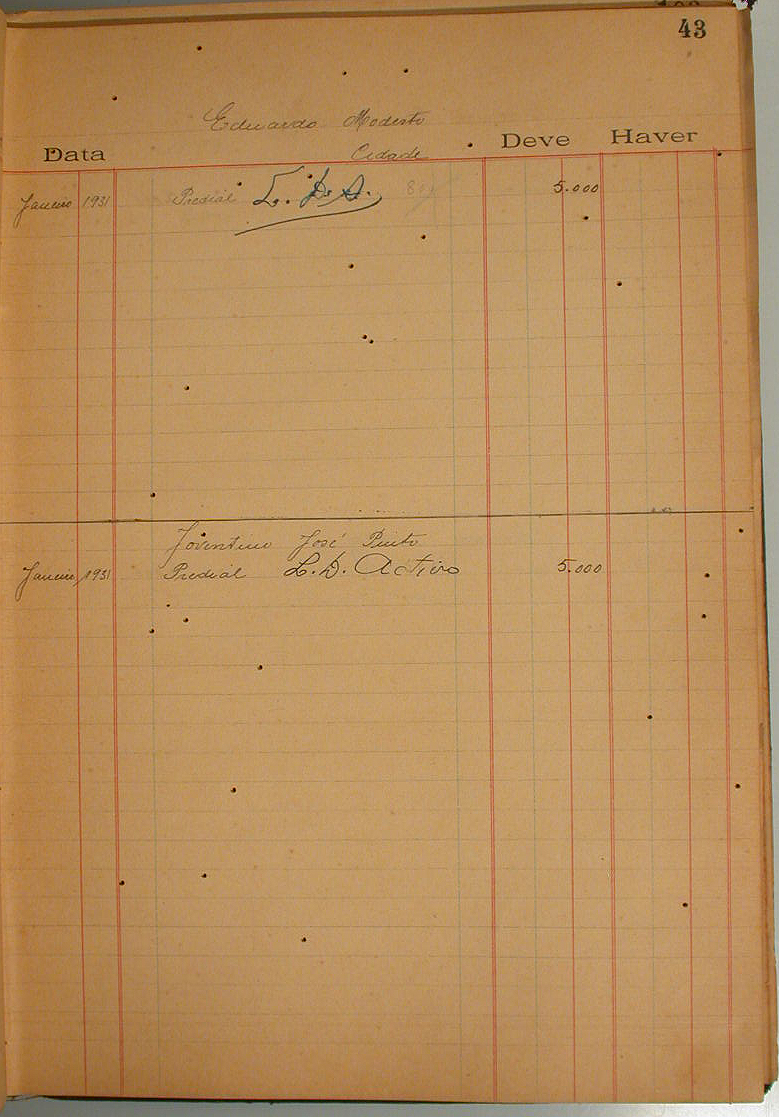 43
Eduardo Modesto
Data Cidade Deve Haver
Janeiro 1931 Predial L. D. A. 5.000
Joventino José Pinto
Janeiro 1931 Predial L. D. Activo 5.000